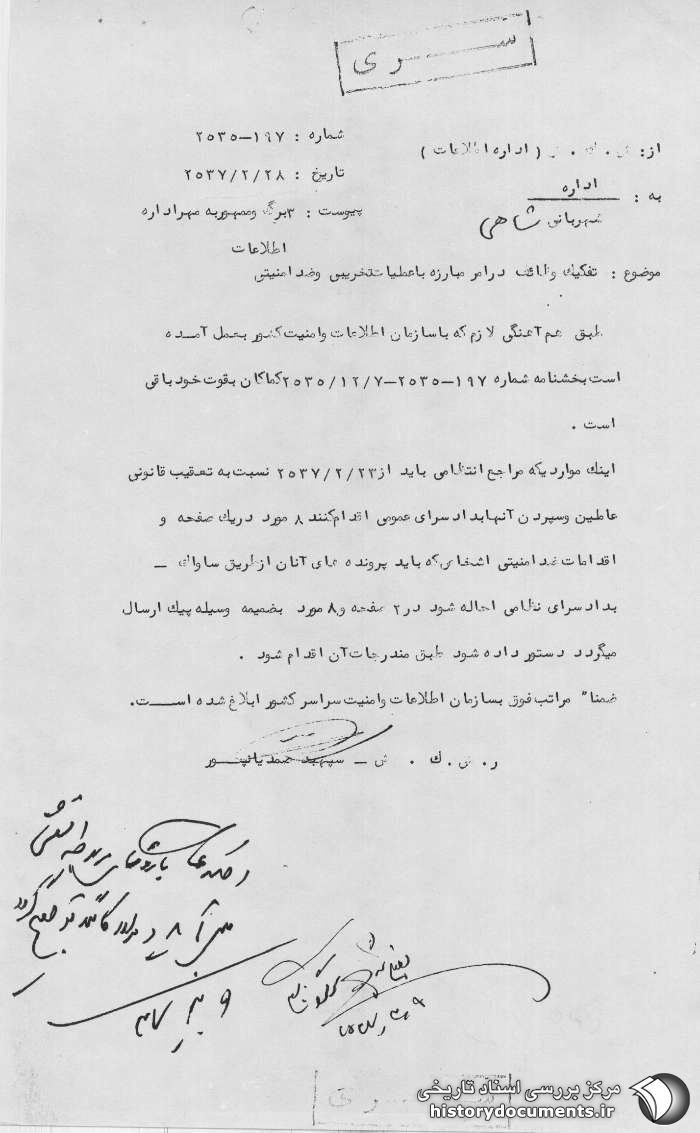 ســری
از: ش . ك . ش ( اداره اطلاعات )
شماره : ۱۹۷-۲۵۳۵
تاریخ : ۲۵۳۷/۲/۲۸
به : اداره
شهربانی شاهی
پیوست : ۳برگ وممهوربه مهراداره
اطلاعات
موضوع : تفکیك وظائف درامر مبارزه باعملیات‌تخریبی وضد امنیتی
طبق هم‌آهنگی لازم که باسازمان اطلاعات وامنیت‌کشور بعمل آمــده
است‌بخشنامه شماره ۱۹۷-۲۵۳۵-۲۵۳۵/۱۲/۷کماکان بقوت‌خود باقی
است .
اینك مواردیکه مراجع انتظامی باید از۲۵۳۷/۲/۲۳ نسبت‌به تعقیب قانونی
عاملین وسپردن آنهابداد سرای عمومی اقدام‌کنند ۸ مورد دریك صفحه و
اقدامات‌ضد امنیتی اشخاص‌که باید پرونده های آنان ازطریق ساواك ــ
بداد سرای نظامی احاله شود در۲ صفحه و۸ مورد بضمیمه وسیله پیك ارسال
میگردد دستور داده شود طبق مندرجات‌آن اقدام شود .
ضمنا" مراتب‌فوق بسازمان اطلاعات‌وامنیت‌سراسر کشور ابلاغ شده اســـت.
ر. ش. ك . ش ـ سپهبد صمدیانپـــور
ســری
مرکز بررسی اسناد تاریخی
historydocuments.ir